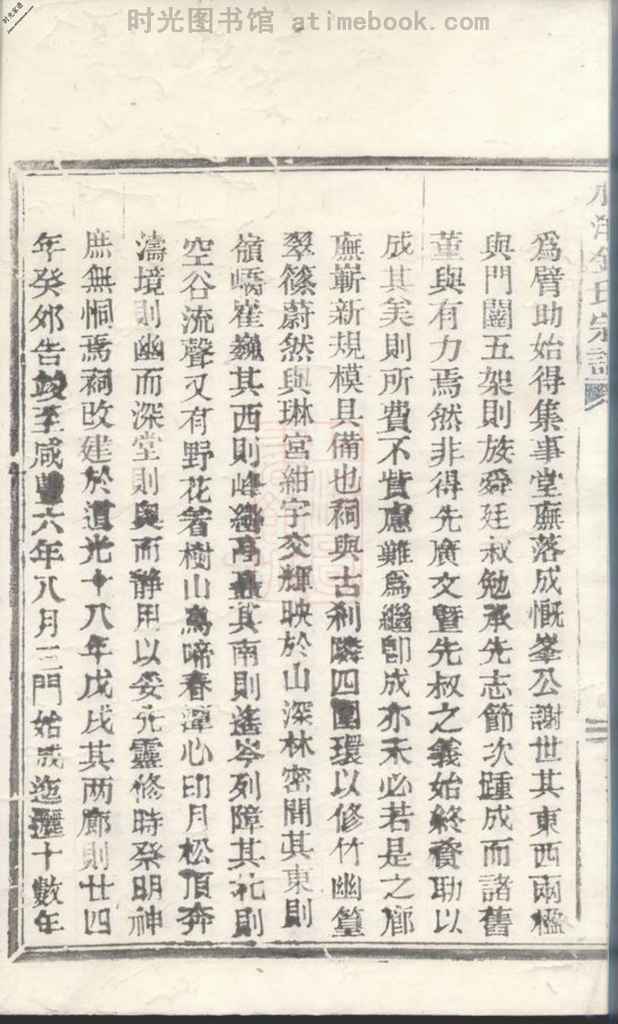 时光图书馆 atimebook.com
洋金氏宗譜
為臂助始得集事堂廡落成慨峯公謝世其東西兩楹
與門闥五架則族舜廷叔勉承先志節次踵成而諸舊
董與有力焉然非得先廣文暨先叔之義始終資助以
成其美則所費不貲慮難為繼卽成亦未必若是之廊
廡嶄新規模具備也祠與古刹隣四圍環以修竹幽篁
翠篠蔚然與琳宮紺宇交輝映於山深林密間其東則
嶺嶠崔巍其西則峰巒高矗其南則遙岑列障其北則
空谷流聲又有野花着樹山鳥啼春潭心印月松頂奔
濤境則幽而深堂則奥而静用以妥先靈修時祭明神
庶無恫焉祠改建於道光十八年戊戌其两廊則廿四
年癸卯告竣至咸豐六年八月三門始成迤邐十數年